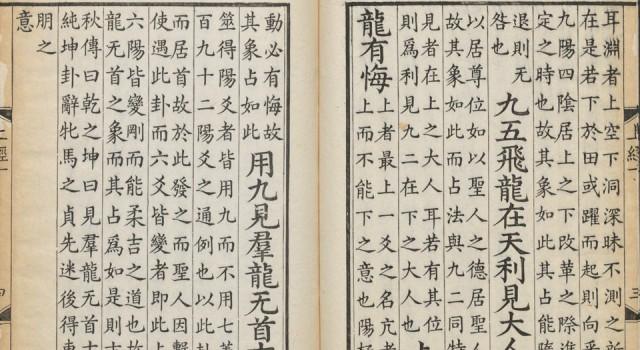 耳淵者上空下洞深昧不測之所
在是若下於田或躍而起則向乎
九陽四陰居上之下改革之際進
定之時也故其象如此其占能隨
退則无
咎也
九五飛龍在天利見大人
以居尊位如以聖人之德居聖人
故其象如此而占法與九二同特
見者在上之大人耳若有其位
則爲利見九二在下之大人也
上
龍有悔
上者最上一爻之名亢者
上而不能下之意也陽極
動必有悔故
其象占如此
用九見羣龍无首吉
筮得陽爻者皆用九而不用七蓋
百九十二陽爻之通例也以此卦
而居首故於此發之而聖人因繫
使遇此卦而六爻皆變者即此占
六陽皆變剛而能柔吉之道也故
龍无首之象而其占爲如是則吉
秋傳曰乾之坤曰見羣龍无首吉
純坤卦辭牝馬之貞先迷後得東
朋之
意